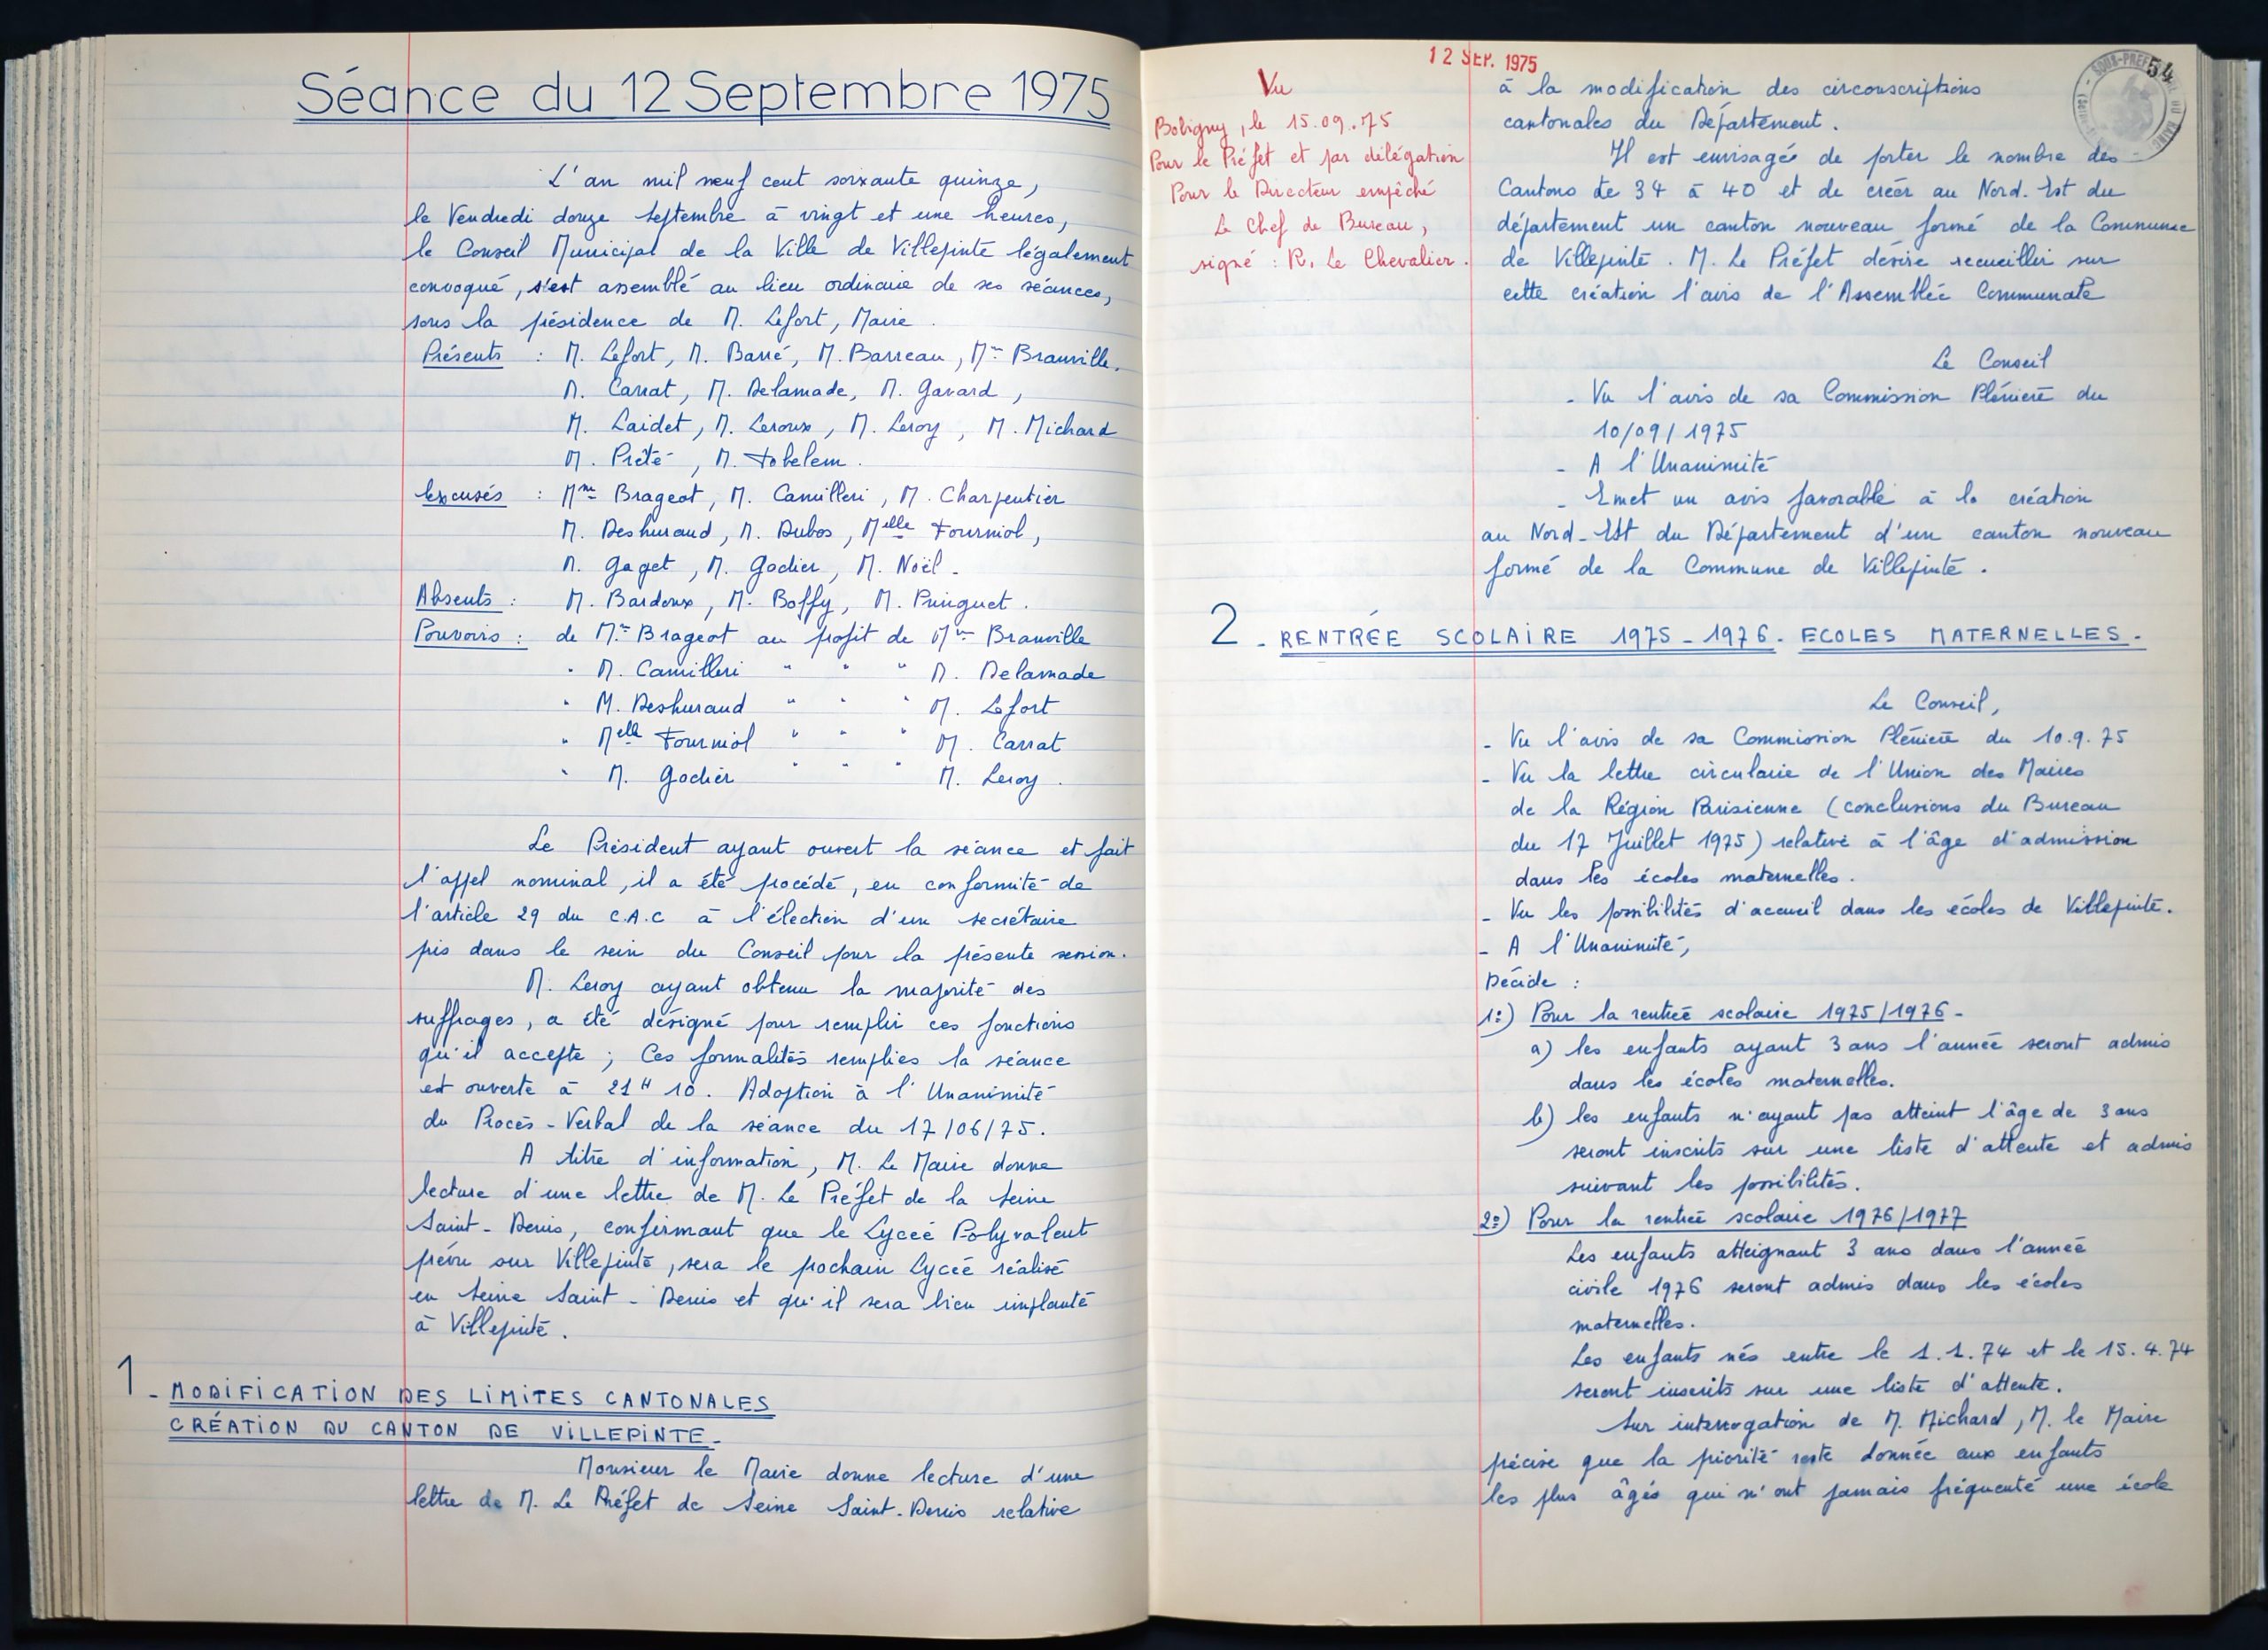 Séance du 12 Septembre 1975
L'an mil neuf cent soixante quinze,
le Vendredi douze Septembre à vingt et une heures,
le Conseil Municipal de la Ville de Villepinte légalement
convoqué, s'est assemblé au lieu ordinaire de ses séances,
sous la présidence de M. Lefort, Maire.
Présents : M. Lefort, M. Barré, M. Barreau, Mme Branville.
M. Carrat, M. Delamade, M. Gavard,
M. Laidet, M. Leroux, M. Leroy, M. Michard
M. Prêté, M. Tobelem.
Excusés : Mme Brageot, M. Camilleri, M. Charpentier
M. Deshuraud, M. Dubos, Melle Fourniol,
M. Gaget, M. Godier, M. Noël.
Absents : M. Bardoux, M. Boffy, M. Puinguet.
Pouvoirs : de Mme Brageot au profit de Mme Branville
" M. Camilleri " " " M. Delamade
" M. Deshuraud " " " M. Lefort
" Melle Fourniol " " " M. Carrat
" M. Godier " " " M. Leroy.
Le Président ayant ouvert la séance et fait
l'appel nominal, il a été procédé, en conformité de
l'article 29 du C.A.C à l'élection d'un secrétaire
pris dans le sein du Conseil pour la présente session.
M. Leroy ayant obtenu la majorité des
suffrages, a été désigné pour remplir ces fonctions
qu'il accepte ; Ces formalités remplies la séance
est ouverte à 21H 10. Adoption à l'Unanimité
du Procès-Verbal de la séance du 17/06/75.
A titre d'information, M. Le Maire donne
lecture d'une lettre de M. Le Préfet de la Seine
Saint-Denis, confirmant que le Lycée Polyvalent
prévu sur Villepinte, sera le prochain Lycée réalisé
en Seine Saint-Denis et qu'il sera bien implanté
à Villepinte.
1 - MODIFICATION DES LIMITES CANTONALES
CRÉATION DU CANTON DE VILLEPINTE-
Monsieur le Maire donne lecture d'une
lettre de M. Le Préfet de Seine Saint-Denis relative
12 SEP. 1975
54
Vu
Bobigny, le 15.09.75
Pour le Préfet et par délégation
Pour le Directeur empêché
Le Chef de Bureau,
signé : R. Le Chevalier.
à la modification des circonscriptions
cantonales du Département.
Il est envisagé de porter le nombre des
Cantons de 34 à 40 et de créer au Nord-Est du
département un canton nouveau formé de la Commune
de Villepinte. M. Le Préfet désire recueillir sur
cette création l'avis de l'Assemblée Communale
Le Conseil
- Vu l'avis de sa Commission Plénière du
10/09/1975
- A l'Unanimité
- Emet un avis favorable à la création
au Nord-Est du Département d'un canton nouveau
formé de la Commune de Villepinte.
2 - RENTRÉE SCOLAIRE 1975-1976. ECOLES MATERNELLES.
Le Conseil,
- Vu l'avis de sa Commission Plénière du 10.9.75
- Vu la lettre circulaire de l'Union des Maires
de la Région Parisienne (conclusions du Bureau
du 17 Juillet 1975) relative à l'âge d'admission
dans les écoles maternelles.
- Vu les possibilités d'accueil dans les écoles de Villepinte.
- A l'Unanimité,
Décide :
1°) Pour la rentrée scolaire 1975/1976-
a) les enfants ayant 3 ans l'année seront admis
dans les écoles maternelles.
b) les enfants n'ayant pas atteint l'âge de 3 ans
seront inscrits sur une liste d'attente et admis
suivant les possibilités.
2°) Pour la rentrée scolaire 1976/1977
Les enfants atteignant 3 ans dans l'année
civile 1976 seront admis dans les écoles
maternelles.
Les enfants nés entre le 1.1.74 et le 15.4.74
seront inscrits sur une liste d'attente.
Sur interrogation de M. Michard, M. le Maire
précise que la priorité reste donnée aux enfants
les plus âgés qui n'ont jamais fréquenté une école